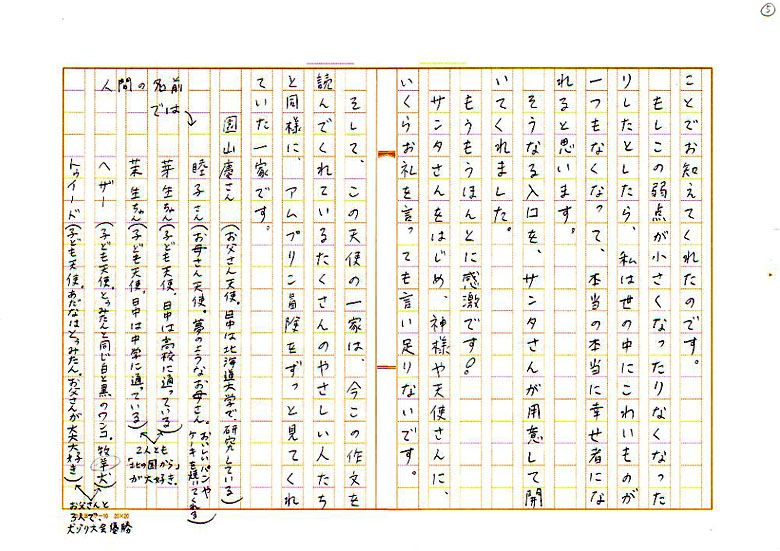 ⑤
ことでお知えてくれたのです。
もしこの弱点が小さくなったりなくなった
りしたとしたら、私は世の中にこわいものが
一つもなくなって、本当の本当に幸せ者にな
れると思います。
そうなる入口を、サンタさんが用意して開
いてくれました。
もうもうほんとに感激です!
サンタさんをはじめ、神様や天使さんに、
いくらお礼を言っても言い足りないです。
そして、この天使の一家は、今この作文を
読んでくれているたくさんのやさしい人たち
と同様に、アムプリン冒険をずっと見てくれ
ていた一家です。
人間の名前
では
山慶さん(お父さん天使。日中は北海道大学で、研究している)
睦子さん(お母さん天使。夢のようなお母さん。おいしいパンやケーキを焼いてくれる)
芽生ちゃん(子ども天使。日中は高校に通っている)
生ちゃん(子ども天使。日中は中学に通っている)
2人とも
「北の国から」
が大好き。
ヘザー(子ども天使。とぅみたんと同じ白と黒のワンコ。牧羊犬)
トゥイード(子ども天使。あだなはとぅみたん。お父さんが大大大好き)
お父さんと
3人で
犬ゾリ大会優勝
20×20